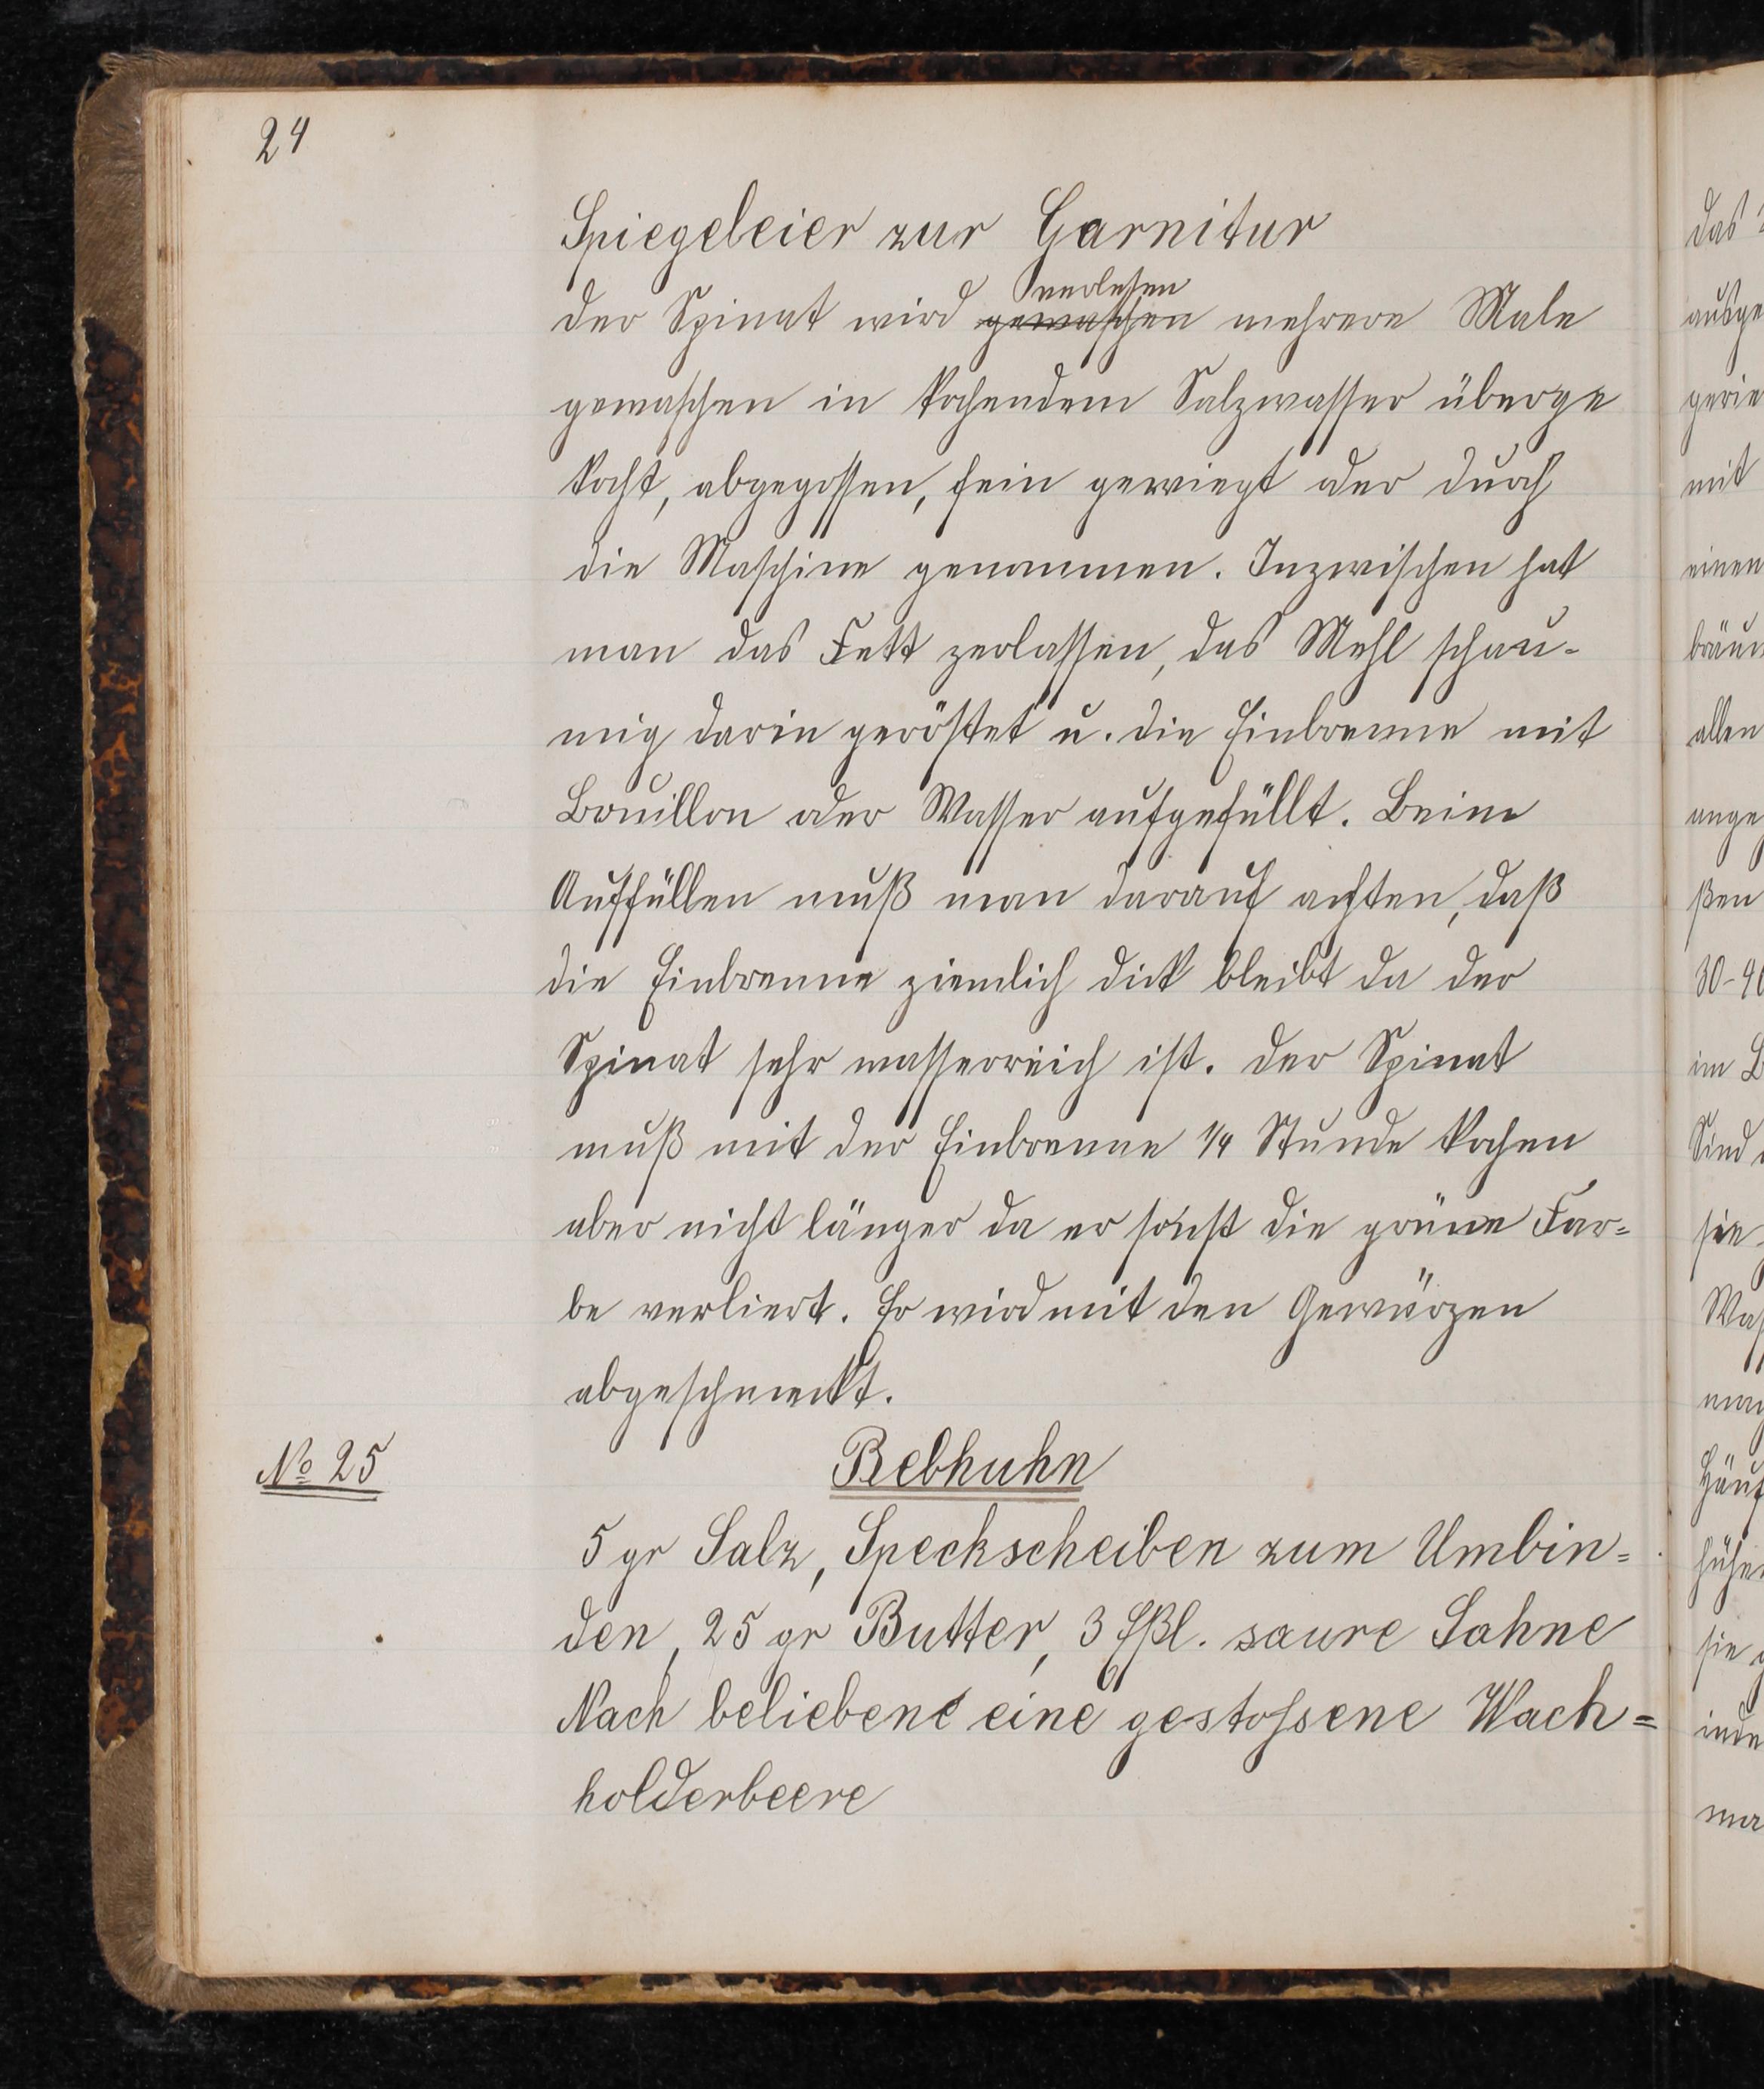 24
Spiegeleier zur Garnitur
verlesen
der Spinat wird gewaschen mehrere Male
gewaschen in kochendem Salzwasser überge
kocht, abgegossen, fein gewiegt oder durch
die Maschine genommen. Inzwischen hat
man das Fett zerlassen, das Mehl schau-
mig darin geröstet u. die Einbrenne mit
Bouillon oder Wasser aufgefüllt. Beim
Auffüllen muß man darauf achten, daß
die Einbrenne ziemlich dick bleibt da der
Spinat sehr wasserreich ist. Der Spinat
muß mit der Einbrenne 1/4 Stunde kochen
aber nicht länger da er sonst die grüne Far=
be verliert. Er wird mit den Gewürzen
abgeschmeckt.
No 25
Rebhuhn
5 gr Salz, Speckscheiben zum Umbin=
den, 25 gr Butter, 3 Eßl. saure Sahne
Nach beliebene eine gestossene Wach=
holderbeere
das
ausge
gerie
mit
einen
bräun
allen
ange
ßen
30-40
im B
Sind
sie
Was
man
Häuf
hühn
sie g
inde
ma